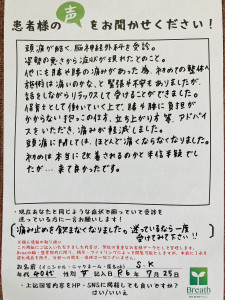 患者様の声をお聞かせください！
頭痛が酷く、脳神経外科を受診。
姿勢の悪さから症状が現れたとのこと。
他にも膝や腰の痛みがあった為、初めての整体へ
施術は痛いのかな、と緊張や不安もありましたが、
話をしながらリラックスして受けることができました。
保育士として働いていく上で、膝や腰に負担が
かからない抱っこの仕方、立ち上がり方等、アドバイ
スをいただき、痛みが軽減しました。
頭痛に関しては、ほとんど痛くならなくなりました。
初めは本当に改善されるのかと半信半疑でし
たが…来て良かったです。
・現在あなたと同じような症状で困っていて受診を
迷っている方に一言お願いします！
痛み止めを飲まなくなりました。迷っているなら一度
受けてみて下さい!!
お名前（イニシャル・ニックネーム・匿名可） S.K
年代 40代 性別 女 記入日 6年 7月 25日
・上記回答内容をHP・SNSに掲載しても良いですか？
はい/いいえ
Breath